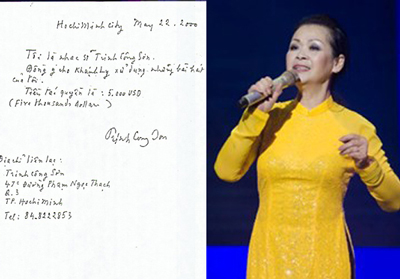 Hochiminh City May 22. 2000
Tôi là nhạc sĩ Trịnh Công Sơn.
Đồng ý cho Khánh Ly xử dụng những bài hát
của tôi.
Tiền tác quyền là : 5.000 USD
(Five thousands dollar)
Trịnh Cong Son
Địa chỉ liên lạc :
Trịnh Công Sơn
47c Đường Phạm Ngọc Thạch
Q.3
TP. Hochiminh
Tel: 84.8222853